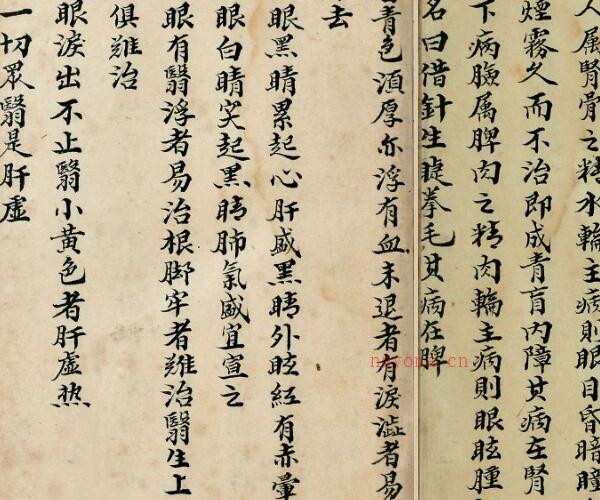 人属腎骨之精水輪主病則眼目昏暗瞳
煙霧久而不治即成青盲内障其病在腎
下病臉属脾肉之精肉輪主病則眼眩腫
名曰借針生睫拳毛其病在脾
青色須厚亦浮有血未退者有淚澁者易
去
眼黑睛累起心肝盛黑睛外眩紅有赤暈
眼白睛突起黑睛肺氣盛宜宣之
眼有翳浮者易治根脚牢者難治翳生上
俱難治
眼淚出不止翳小黄色者肝虛热
一切眾翳是肝虛
nayona.cn